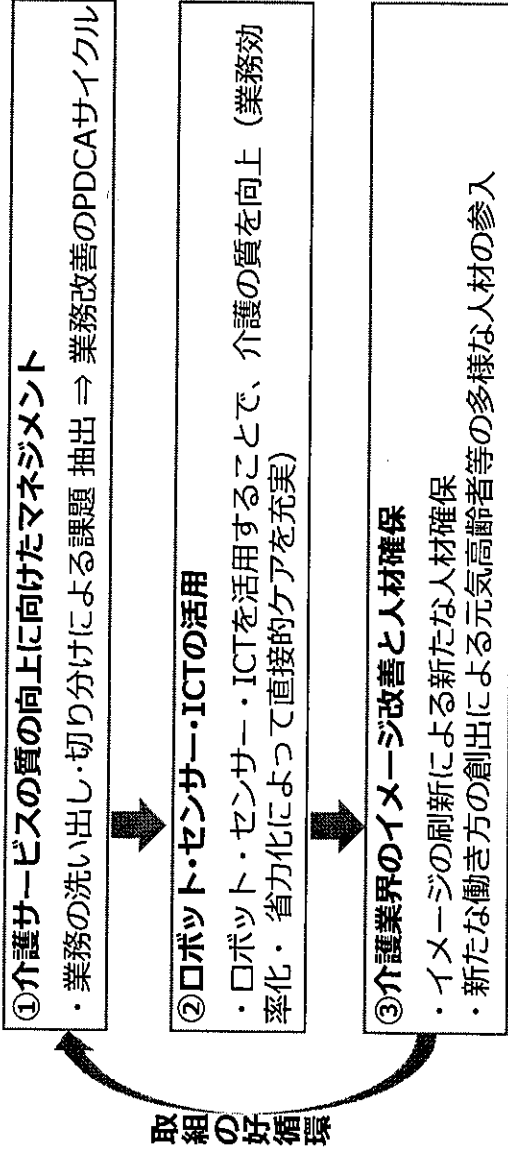 ①介護サービスの質の向上に向けたマネジメント
・業務の洗い出し・切り分けによる課題 抽出 ⇒ 業務改善のPDCAサイクル
②ロボット・センサー・ICTの活用
・ロボット・センサー・ICTを活用することで、介護の質を向上（業務効
率化・省力化によって直接的ケアを充実）
③介護業界のイメージ改善と人材確保
・イメージの刷新による新たな人材確保
・新たな働き方の創出による元気高齢者等の多様な人材の参入
取組の好循環